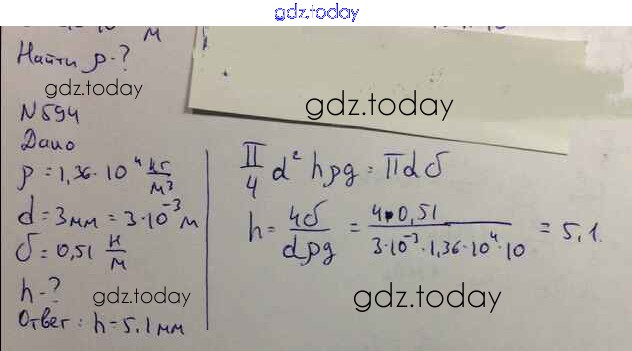 gdz.today
м
Найти ρ-?
gdz.today
gdz.today
N594
Дано
ρ = 1,36·10⁴ кг/м³
d = 3мм = 3·10⁻³ м
σ = 0,51 н/м
h-?
Ответ: h = 5.1мм
gdz.today
π/4 d² hρg = πdσ
h = 4σ/dρg = 4·0,51/3·10⁻³·1,36·10⁴·10 = 5,1.
gdz.today